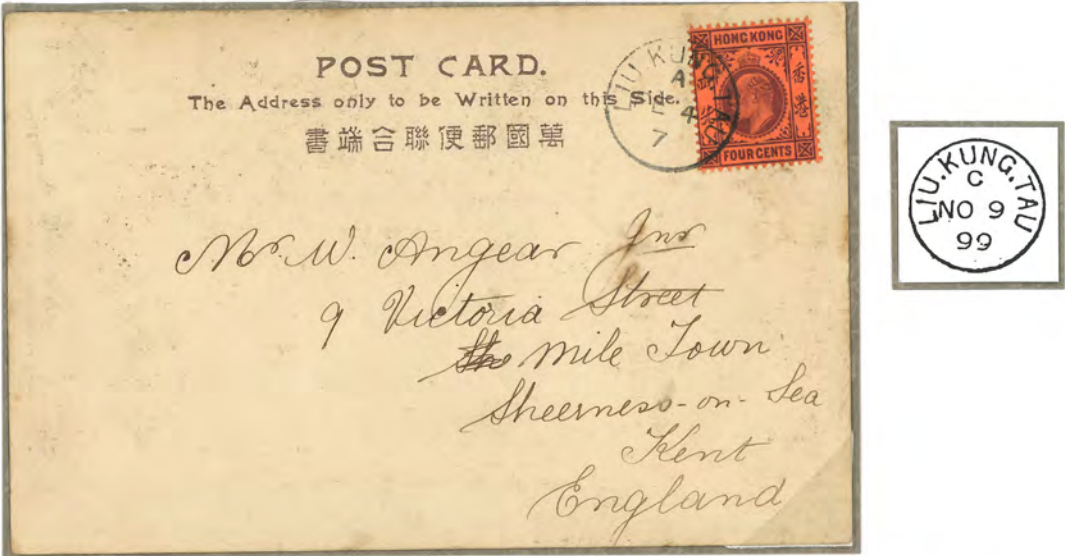 POST CARD.
The Address only to be Written on this Side.
書端合聯便郵國萬
HONG KONG
香港
FOUR CENTS
LIU KUNG TAU
A
4
7
Mr. W. Angear Jnr
9 Victoria Street
Mile Town
Sheerness-on-Sea
Kent
England
LIU.KUNG.TAU
C
NO 9
99